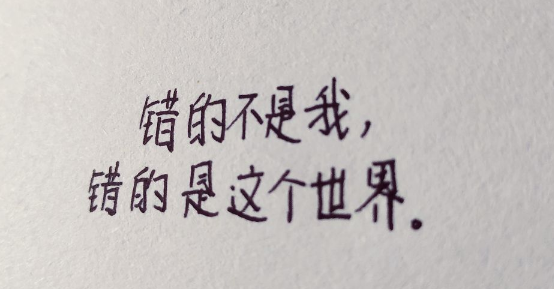 错的不是我，
错的是这个世界。